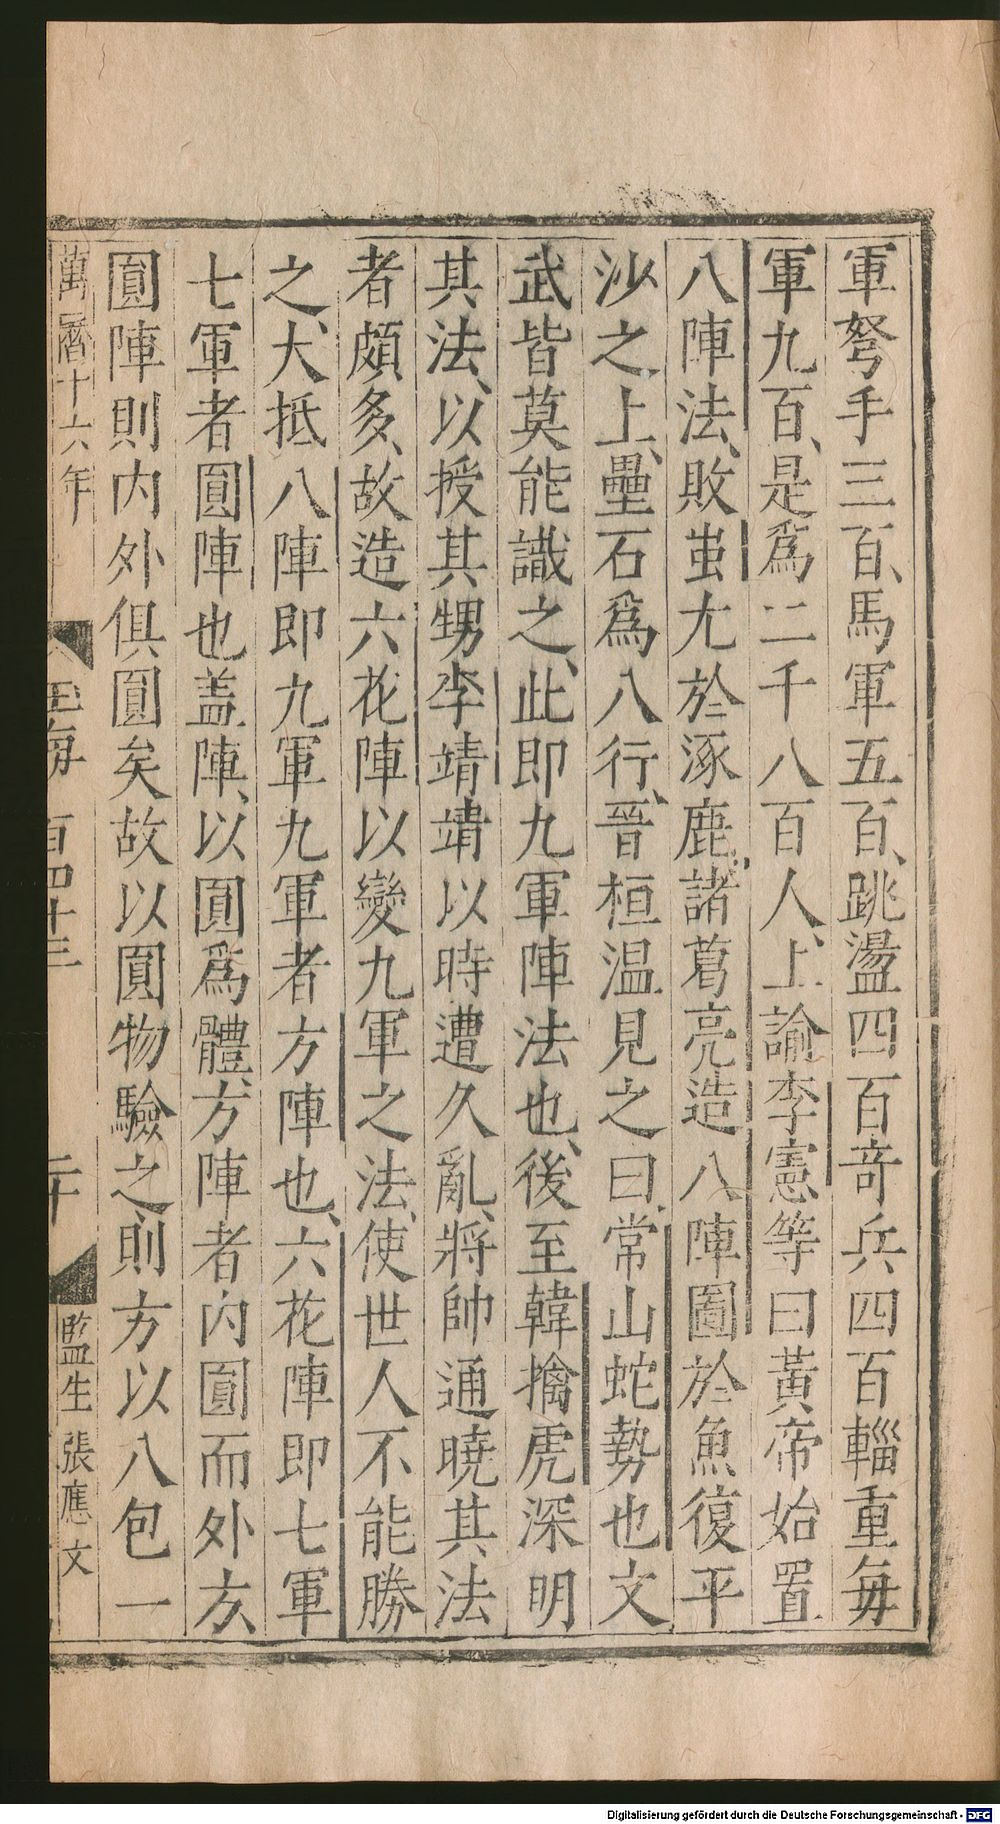 軍弩手三百、馬軍五百、跳盪四百竒兵四百輜重毎
軍九百、是爲二千八百人、上諭李憲等曰黃帝始置
八陣法、敗蚩尤於涿鹿、諸葛亮造八陣圖於魚復平
沙之上、壘石爲八行、晉桓温見之曰、常山蛇勢也文
武皆莫能識之、此即九軍陣法也、後至韓擒虎深明
其法、以授其甥李靖靖以時遭久亂、將帥通曉其法
者頗多、故造六花陣以變九軍之法、使世人不能勝
之、大抵八陣即九軍九軍者方陣也、六花陣即七軍
七軍者圓陣也盖陣、以圓爲體、方陣者内圓而外方
圓陣則内外俱圓矣故以圓物驗之則方以八包一
萬曆十六年
玉海 百四十三
二十
監生張應文
Digitalisierung gefördert durch die Deutsche Forschungsgemeinschaft - DFG